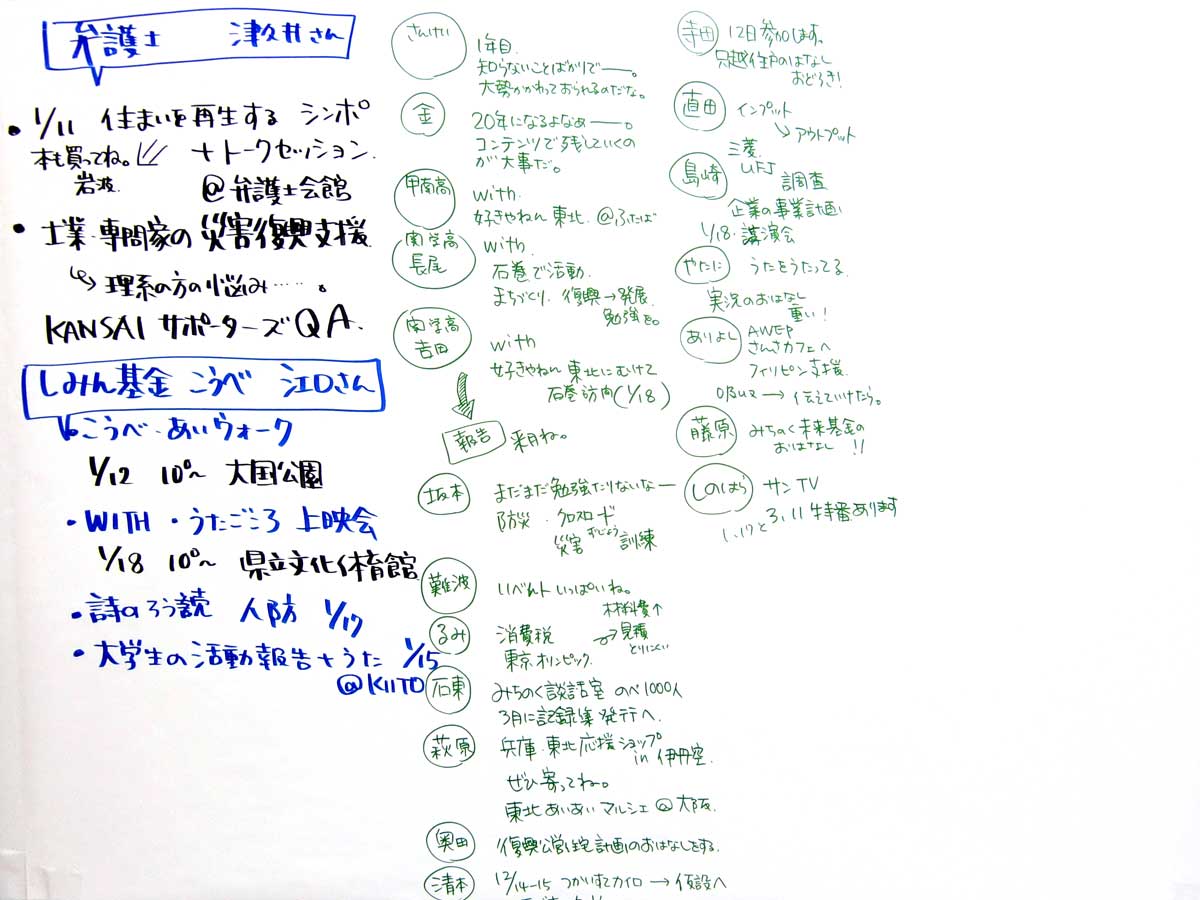 弁護士 津久井さん
・1/11 住まいを再生する シンポ
本も買ってね。 + トークセッション.
岩波. @弁護士会館
・士業・専門家の災害復興支援
理系の方の悩み……。
KANSAI サポーターズQA.
しみん基金 こうべ 江口さん
こうべ・あいウォーク
1/12 10⁰〜 大国公園
・WITH・うたごころ 上映会
1/18 10⁰〜 県立文化体育館
・詩のろう読 人防 1/17
・大学生の活動報告+うた 1/15
@KIITO
さんけい
1年目.
知らないことばかりで——。
大勢かかわっておられるのだな。
金
20年になるよなぁ——。
コンテンツで残していくの
が大事だ。
甲南高
with.
好きやねん 東北. @ふたば
関学高
長尾
with.
石巻で活動.
まちづくり. 復興→発展.
勉強を。
関学高
吉田
with
好きやねん 東北にむけて
石巻訪問(1/18)
報告 来月ね。
坂本 まだまだ勉強たりないなー
防災・クロスロード
災害 訓練
難波 いべんと いっぱいね。
るみ 消費税
東京オリンピック.
材料費↑
→見積
とりにくい
石東 みちのく談話室 のべ1000人
3月に記録集 発行へ.
萩原 兵庫・東北応援ショップ
in 伊丹空.
ぜひ寄ってね。
東北 あいあい マルシェ @大阪.
奥田 復興公営住宅計画のおはなしをする.
清本 12/14-15 つかいすてカイロ → 仮設へ
寺田 12日参加します。
借上住戸のはなし
おどろき!
直田 インプット
→アウトプット
島崎 三菱
UFJ 調査
企業の事業計画
1/18 講演会
やたに うたをうたってる.
実況のおはなし
重い!
ありよし AWEP
さんさカフェへ
フィリピン支援.
→ 伝えていけたら。
藤原 みちのく未来基金の
おはなし !!
しのはら サンTV
1.17と3.11 特番あります